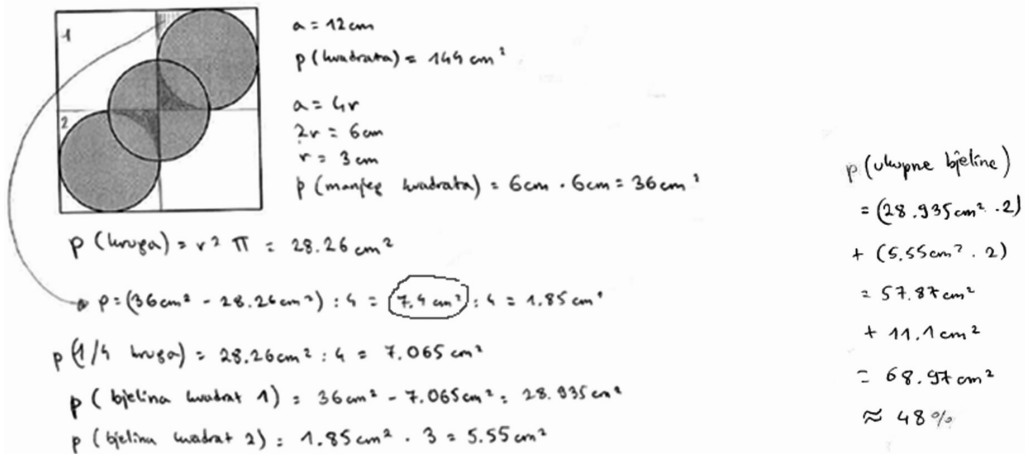 1
2
a = 12cm
p (kvadrata) = 144 cm²
a = 4r
2r = 6cm
r = 3 cm
p (manjeg kvadrata) = 6cm · 6cm = 36cm²
p (kruga) = r² π = 28.26 cm²
p = (36cm² - 28.26cm²) : 4 = 7.4 cm² : 4 = 1.85 cm²
p (1/4 kruga) = 28.26cm² : 4 = 7.065 cm²
p ( bjelina kvadrat 1) = 36cm² - 7.065cm² = 28.935cm²
p (bjelina kvadrat 2) = 1.85cm² · 3 = 5.55cm²
p (ukupne bjeline)
= (28.935cm² · 2)
+ (5.55cm² · 2)
= 57.87cm²
+ 11.1cm²
= 68.97cm²
≈ 48%